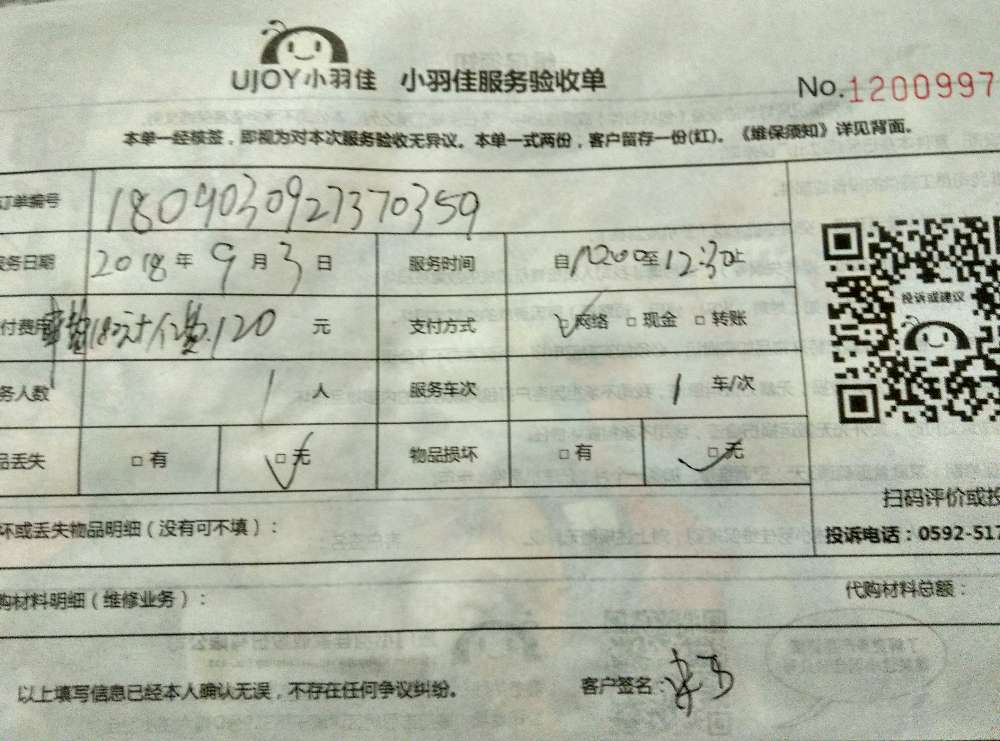 UJOY小羽佳 小羽佳服务验收单
No.1200997
本单一经核签，即视为对本次服务验收无异议。本单一式两份，客户留存一份(红)。《维保须知》详见背面。
订单编号 1809030927370359
服务日期 2018年9月3日 服务时间 自10:00至12:30止
投诉或建议
付费用 180元 120元 支付方式 ☑网络 □现金 □转账
务人数 1人 服务车次 1车/次
品丢失 □有 ☑无 物品损坏 □有 ☑无
扫码评价或投
坏或丢失物品明细（没有可不填）：
投诉电话：0592-517
购材料明细（维修业务）： 代购材料总额：
以上填写信息已经本人确认无误，不存在任何争议纠纷。 客户签名：